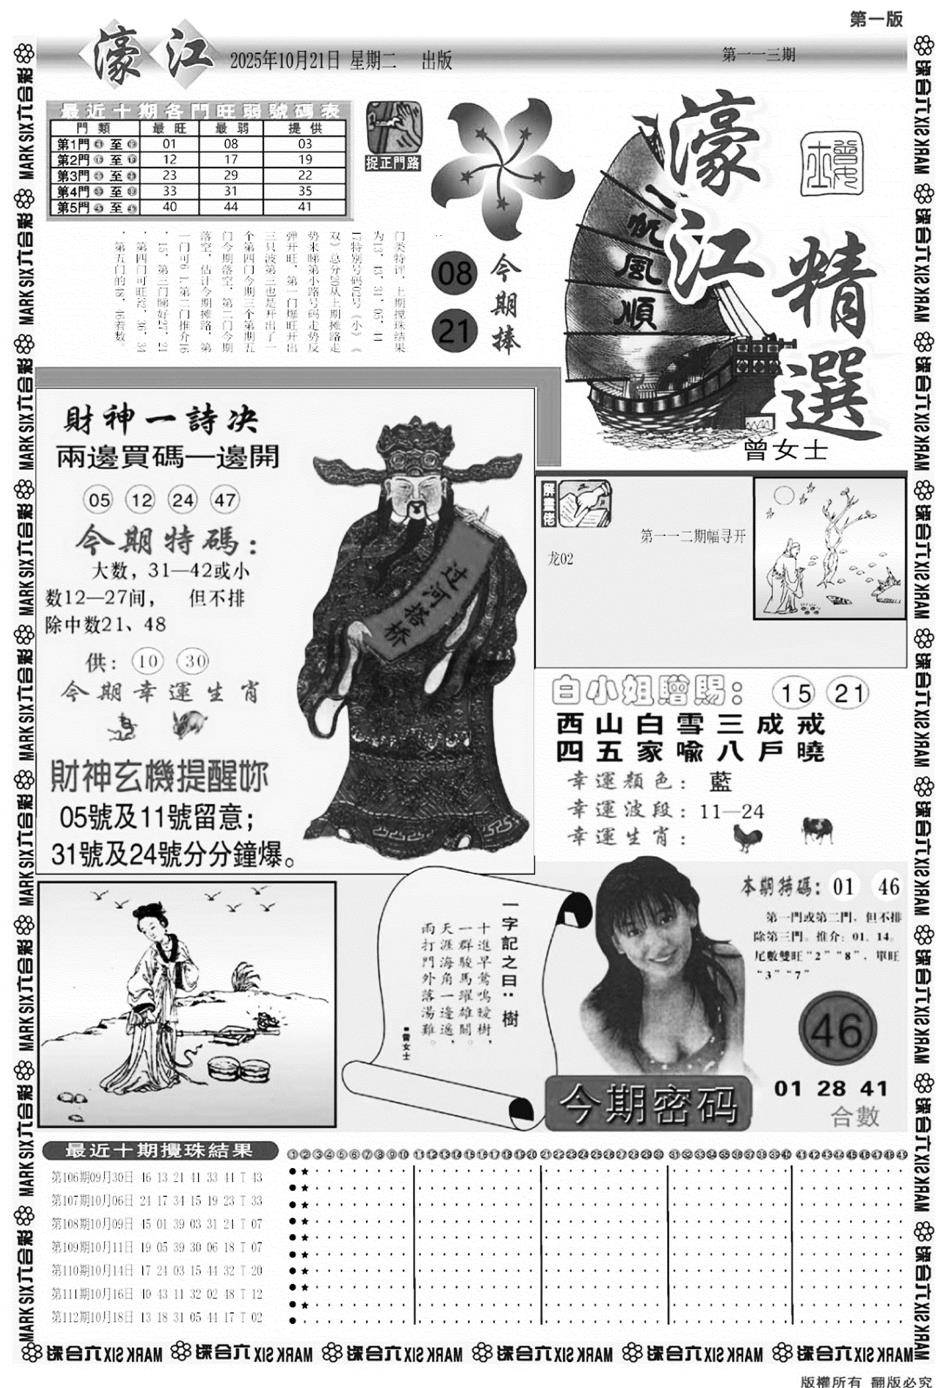 第一版
濠江
2025年10月21日 星期二 出版
第一一三期
最近十期各門旺弱號碼表
門類 最旺 最弱 提供
第1門 至 01 08 03
第2門 至 12 17 19
第3門 至 23 29 22
第4門 至 33 31 35
第5門 至 40 44 41
捉正門路
08 21
今期捧
一帆風順
濠江精選
曾女士
財神一詩决
兩邊買碼一邊開
05 12 24 47
今期特碼：
大数，31—42或小
数12—27间， 但不排
除中数21、48
供：10 30
今期幸運生肖
財神玄機提醒妳
05號及11號留意；
31號及24號分分鐘爆。
过河搭桥
解畫佬
第一一二期幅寻开
龙02
白小姐贈賜：15 21
西山白雪三成戒
四五家喻八戶曉
幸運顏色：藍
幸運波段：11—24
幸運生肖：
一字記之曰：樹
十進早鶯鳴暧樹，
一群駿馬躍雄關。
天涯海角一邊遥，
兩打門外落湯難。
●曾女士
本期特碼：01 46
第一門或第二門，但不排
除第三門。推介：01、14。
尾數雙旺“2”“8”，單旺
“3”“7”
46
今期密码
01 28 41
合數
最近十期攪珠結果
第106期09月30日 46 13 21 41 33 44 T 43
第107期10月06日 24 17 34 15 19 23 T 33
第108期10月09日 45 01 39 03 31 24 T 07
第109期10月11日 19 05 39 30 06 18 T 07
第110期10月14日 17 24 03 15 44 32 T 20
第111期10月16日 40 43 11 32 02 48 T 12
第112期10月18日 13 18 31 05 44 17 T 02
六合彩 MARK SIX
版權所有 翻版必究